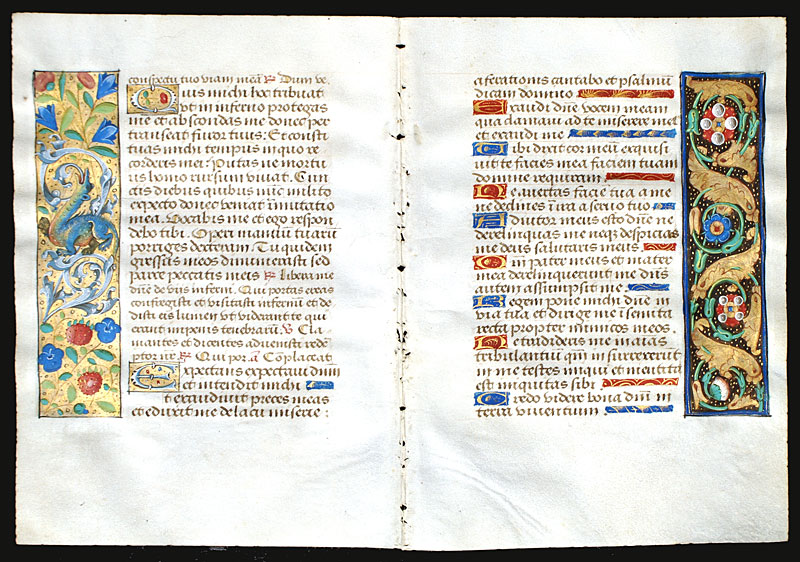 conspectu tuo viam meā ℟ Dum ve
Uis michi hoc tribuat
vt in inferno protegas
me et abscondas me donec per
transeat furor tuus: Et consti
tuas michi tempus in quo re
corderis mei: Putas ne mortu
us homo rursum vivat. Cun
ctis diebus quibus nūc milito
expecto donec veniat īmutatio
mea. Vocabis me et ego respon
debo tibi. Operi manuū tuarū
porriges dexteram. Tu quidem
gressus meos dinumerasti sed
parce peccatis meis ℟ Libera me
dn̄e de viis inferni. Qui portas ereas
confregisti et visitasti infernū et de
disti eis lumen vt viderant te qui
erant in penis tenebrarū ℣ Cla
mantes et dicentes advenisti rede
ptor nr̄ ℟ Qui por. a Cōplaceat
Expectans expectavi dn̄m
et intendit michi
Et exaudivit preces meas
et eduxit me de lacu miserie:
ciferationis cantabo et psalmū
dicam domino
Exaudi dn̄e vocem meam
qua clamavi ad te miserere mei
et exaudi me
Tibi dixit cor meū exquisi
vit te facies mea faciem tuam
domine requiram
Ne avertas faciē tuā a me
ne declines in ira a servo tuo
Adiutor meus esto dn̄e ne
derelinquas me neqꝫ despicias
me deus salutaris meus
Qm̄ pater meus et mater
mea derelinquerunt me dn̄s
autem assumpsit me
Legem pone michi dn̄e in
via tua et dirige me ī semita
recta propter inimicos meos.
Ne tradideris me in aīas
tribulantiū qm̄ insurrexerūt
in me testes iniqui et mentita
est iniquitas sibi
Credo videre bona dn̄i in
terra viventium